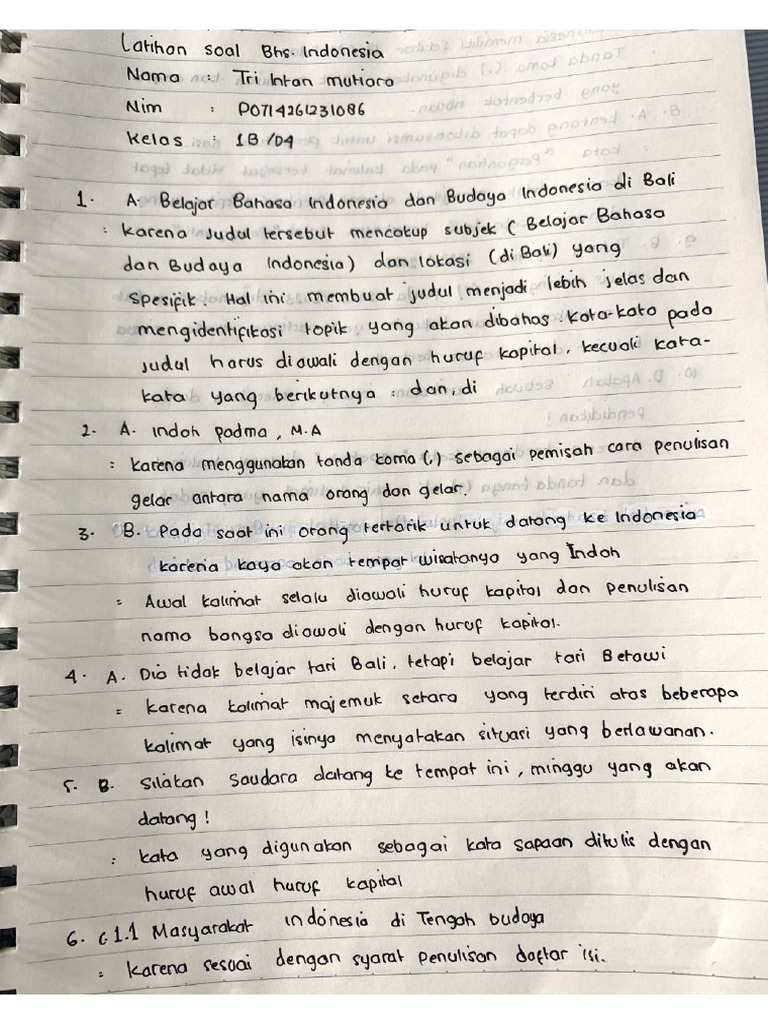 Latihan soal Bhs. Indonesia
Nama : Tri Intan mutiara
Nim : P0714261231086
Kelas : 1B /D4
1. A. Belajar Bahasa Indonesia dan Budaya Indonesia di Bali
: karena judul tersebut mencakup subjek ( Belajar Bahasa
dan Budaya Indonesia) dan lokasi (di Bali) yang
spesifik. Hal ini membuat judul menjadi lebih jelas dan
mengidentifikasi topik yang akan dibahas. Kata-kata pada
judul harus diawali dengan huruf kapital, kecuali kata-
kata yang berikutnya : dan, di
2. A. indah padma, M.A
: karena menggunakan tanda koma (,) sebagai pemisah cara penulisan
gelar antara nama orang dan gelar.
3. B. Pada saat ini orang tertarik untuk datang ke Indonesia
karena kaya akan tempat wisatanya yang Indah
= Awal kalimat selalu diawali huruf kapital dan penulisan
nama bangsa diawali dengan huruf kapital.
4. A. Dia tidak belajar tari Bali, tetapi belajar tari Betawi
= karena kalimat majemuk setara yang terdiri atas beberapa
kalimat yang isinya menyatakan situasi yang berlawanan.
5. B. Silakan Saudara datang ke tempat ini, minggu yang akan
datang!
: kata yang digunakan sebagai kata sapaan ditulis dengan
huruf awal huruf kapital
6. C. 1.1 Masyarakat indonesia di Tengah budaya
= karena sesuai dengan syarat penulisan daftar isi.